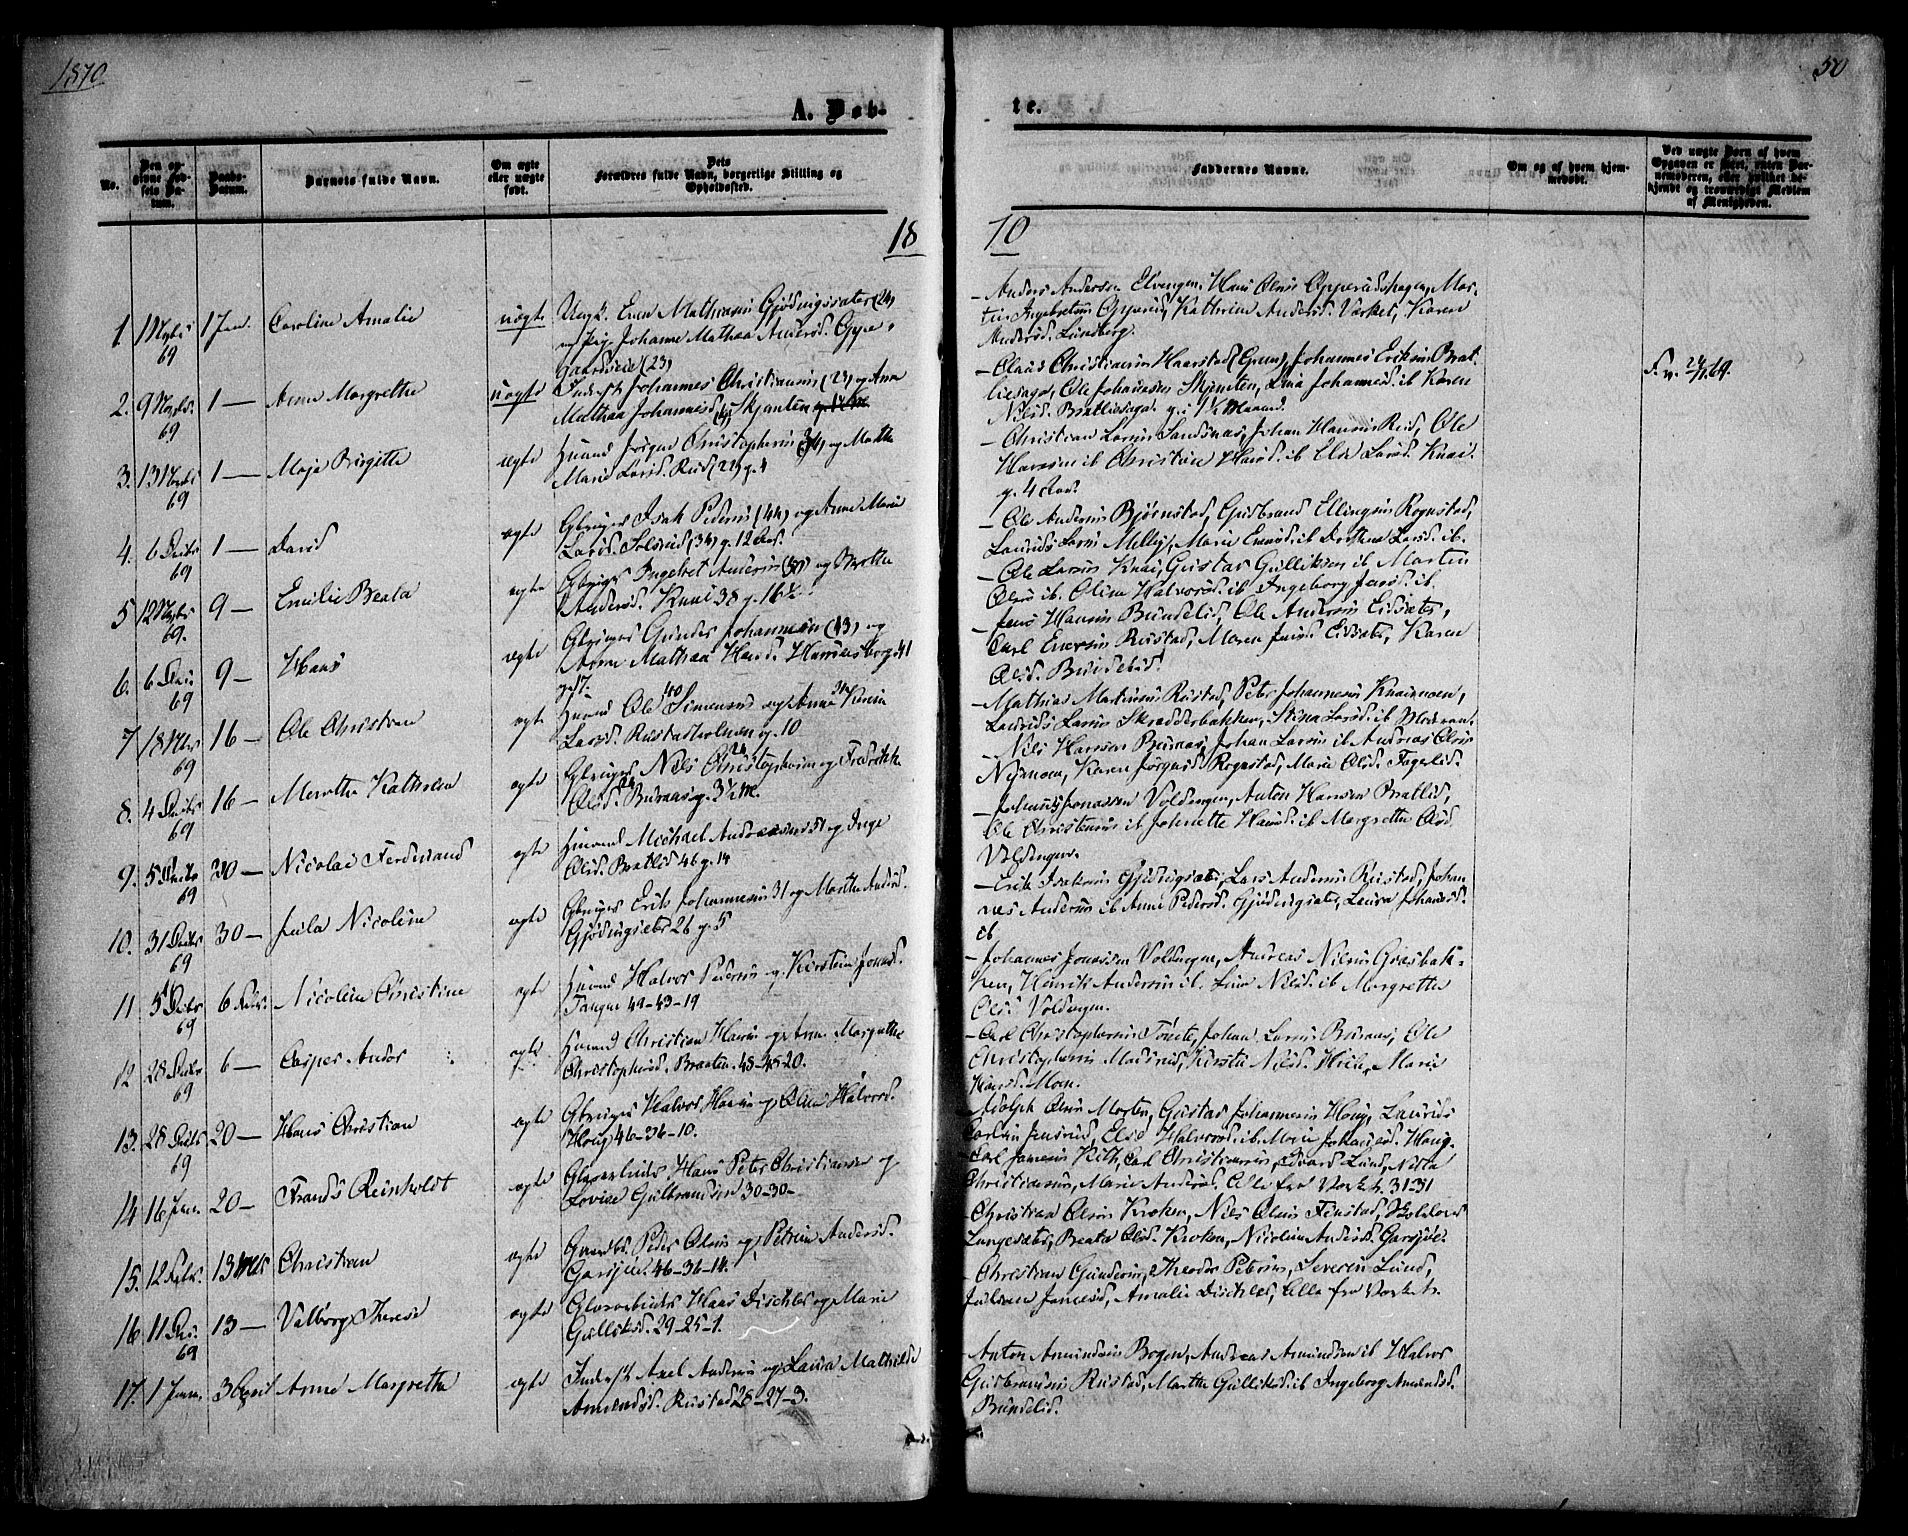 1870.
50
A. Døb-
te.
No.
Den op-
givne Fød-
sels Da-
tum.
Daabs-
Datum.
Barnets fulde Navn.
Om ægte
eller uægte
født.
Dets
Forældres fulde Navn, borgerlige Stilling og
Opholdssted.
Faddernes Navne.
Om og af hvem hjem-
medøbt.
Ved uægte Børn af hvem
Opgaven er skeet, enten Bar-
nemoderen, eller hvilket be-
kjendt og troværdigt Medlem
af Menigheden.
18
70
1.
69
17 Jan.
Caroline Amalie
uægte
Ungk. Even Mathiasen Gjødingsæter (24)
og Pige Johanne Mathea Andersd. Oppe
(23)
- Anders Andersen Elvengen, Hans Olsen Opperudshagen, Mar-
tin Ingebretsen Opperud, Kathrine Andersd. Værket, Karen
Andersd. Lundberg.
2.
69
1 —
Anne Margrethe
uægte
Inderst Johannes Christiansen (23) og Anne
Mathea Johannesd. Skjenten
- Claus Christiansen Haarstad, Johannes Eriksen Brat-
liesag, Ole Johannesen Skjenten, Lina Johannesd. ib Karen
Nilsd. Bratliesag.
F. v. 24/11 69.
3.
69
1 —
Maja Birgitte
ægte
Huusmd Jørgen Christophersen (34) og Marthe
Marie Larsd. Rud (22) g. 4
- Christian Larsen Sandsnæs, Johan Hansen Rud, Ole
Hansen ib Christine Hansd. ib Else Larsd. Knai.
g. 4 Aar.
4.
6 Decbr
69
1 —
David
ægte
Gbruger Isak Pedersen (44) og Anne Marie
Larsd. Solerud (34) g. 12 Aar.
- Ole Andersen Bjørnstad, Gudbrand Ellingsen Rognstad,
Laurids Larsen Melby, Marie Enersd. ib Dorthea Larsd. ib.
5
69.
9 —
Emilie Beata
ægte
Gbruger Ingebret Andersen og Marthe
Andersd. Knai 38 g. 16½
- Ole Larsen Knai, Gustav Gulliksen ib Morten
Olsen ib. Oline Halvorsd. ib Ingeborg Jensd. ib.
6.
69
9 —
Hans
ægte
Gbruger Gunder Johannesen (43) og
Anne Mathea Hansd. 41
g. 17.
- Jens Hansen Bundelid, Ole Andersen Eidsæter,
Carl Enersen Rustad, Maren Jensd. Eidsæter, Karen
Olsd. Bundelid.
7
69
16 —
Ole Christian
ægte
Huusmd Ole Simensen 40 og Anne Karine
Larsd. Rustadholmen g. 10
- Mathias Martinsen Rustad, Peter Johannesen Knaimoen,
Laurids Larsen Skrædderbakken, Stina Larsd. ib
8.
4 Decbr
69
16 —
Merethe Kathrine
ægte
Gbruger Nils Christophersen og Fredrikke
Olsd. Burnæs g. 3½ M.
- Nils Hansen Burnæs, Johan Larsen ib Andreas Olsen
Nymoen, Karen Jørgensd. Rognstad, Marie Olsd. Fagerlid.
9.
5 Decbr
69
30 —
Nicolai Ferdinand
ægte
Huusmd Michael Andreassen 51 og Inge
Olsd. Bratlid 46 g. 14
- Johannes Jonassen Voldengen, Anton Hansen Bratlid,
Ole Christensen ib Johnette Hansd. ib Margrethe Olsd.
Voldengen.
10.
31 Decbr
69
30 —
Jula Nicoline
ægte
Gbruger Erik Johannesen 31 og Marthe Andersd.
Gjødingsæter 26 g. 5
- Erik Isaksen Gjødingsæter, Lars Andersen Rustad, Johan-
nes Andersen ib Anne Pedersd. Gjødingsæter, Laura Johannesd.
ib
11
5 Decbr
69
6 Febr.
Nicoline Christine
ægte
Huusmd Halvor Pedersen og Kirsten Jonasd.
Tangen 49-43-19
- Johannes Jonassen Voldengen, Andreas Nilsen Græsbak-
ken, Henrik Andersen ib. Lina Nilsd. ib Margrethe
Olsd. Voldengen.
12
28 Decbr
69
6 —
Casper Andor
ægte
Huusmd Christian Hansen og Anne Margrethe
Christophersd. Braaten. 48-45-20.
- Carl Christophersen Tømte, Johan Larsen Burnæs, Ole
Christophersen Madsrud, Kirsten Nilsd. Hilen, Marie
Hansd. Moen.
13.
28 Decbr
69
20 —
Hans Christian
ægte
Gbruger Halvor Hansen og Oline Halvorsd.
Houg 46-36-10.
- Adolph Olsen Morten, Gustav Johannesen Houg, Laurids
Carlsen Jensrud, Else Halvorsd. ib. Marie Johannesd. Houg.
14
16 Jan.
20 —
Frands Reinholdt
ægte
Glasarbeider Hans Peter Christiansen og
Lovise Gulbrandsen 30-30-
- Carl Jamesen Keith, Carl Christiansen, Edvard Lund, Nilla
Christiansen, Marie Andersd. Alle fra Værket. 31-31
15.
12 Febr.
13 Marts
Christian
ægte
Gaardbr. Peder Olsen og Petrine Andersd.
Garsjøe. 46-36-14.
Christian Olsen Kroken, Nils Olsen Finstad,
Langesæter, Beate Olsd. Kroken, Nicoline Andersd. Garsjøe.
16
11 Dec.
69
13 —
Valborg Therese
ægte
Glasarbeider Hans Dischler og Marie
Gulliksd. 29-25-1.
- Christian Gundersen, Theodor Petersen, Severin Lund,
Juliane Jamesd., Amalie Dischler, Alle fra Værket.
17.
1 Janu.
3 April
Anne Margrethe
ægte
Inderst Axel Andersen og Laura Mathilde
Amundsd. Rustad 28-27-3.
- Anton Amundsen Bogen, Andreas Amundsen ib Halvor
Gudbrandsen Rustad, Marthe Gulliksd. ib Ingeborg Amundsd.
Bundelid.